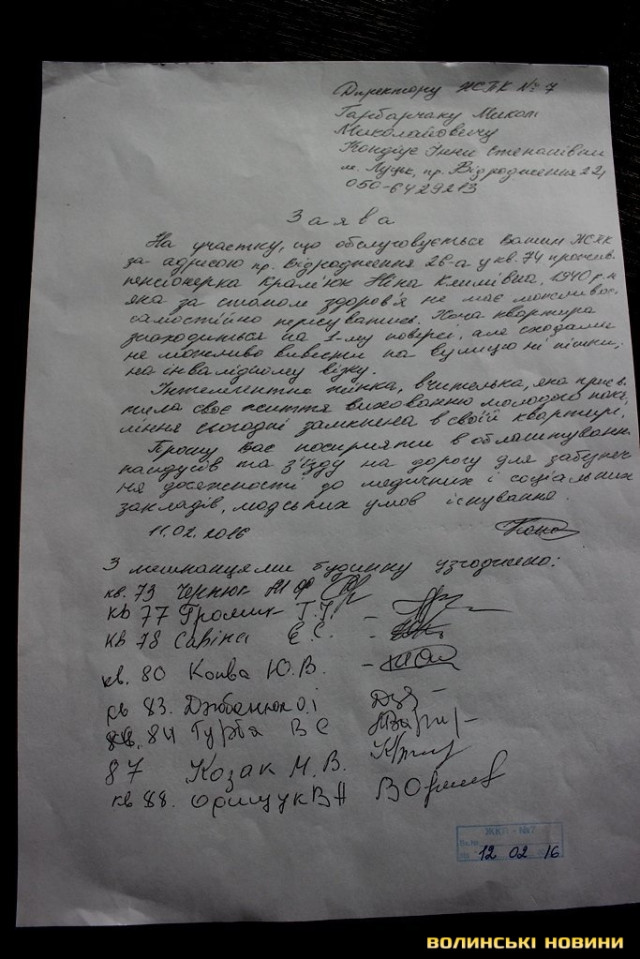 Директору ЖЕК № 7
Гарбарчаку Миколі
Миколайовичу
Кондіус Інни Степанівни
м. Луцьк, пр. Відродження 22,
050-6429213
Заява
На участку, що обслуговується Вашим ЖЕК
за адресою пр. Відродження 26-а у кв. 74 прожив
пенсіонерка Крам'юк Ніна Климівна, 1940 р.н
яка за станом здоров'я не має можливос
самостійно пересуватись. Хоча квартира
знаходиться на 1-му поверсі, але сходами
не можливо вивезти на вулицю ні пішки,
на інвалідному візку.
Інтелегентна жінка, вчителька, яка присв
тила своє життя вихованню молодого поко
ління сьогодні замкнена в своїй квартирі.
Прошу Вас посприяти в облаштуванн
пандусів та з'їзду на дорогу для забезпеч
ня досяжності до медичних і соціальних
закладів, людських умов існування.
11.02.2016
З мешканцями будинку узгоджено:
кв. 79 Чернюк
кв 77 Громик Т.І. –
кв 78 Савіна Е.С. –
кв. 80 Конва Ю.В. –
кв 83. Джбанюк О.І
кв. 84 Гурба В С
87 Козак М. В.
кв 88. Орищук В А
ЖКП - №7
12 02 16
ВОЛИНСЬКІ НОВИНИ